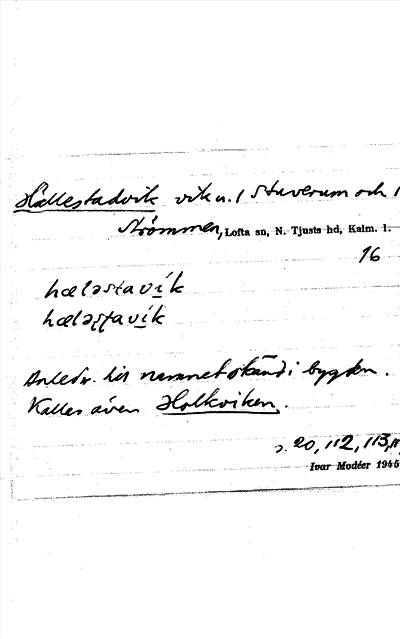 Hällestadvik vik u. / Stuverum och 1
Strömmen, Lofta sn, N. Tjusts hd, Kalm. l.
16
hæləstavík
hæləʂʈavík
Anledn. till namnet okänd i bygden.
Kallas även Holkviken.
s. 20, 112, 113, 11
Ivar Modéer 1945